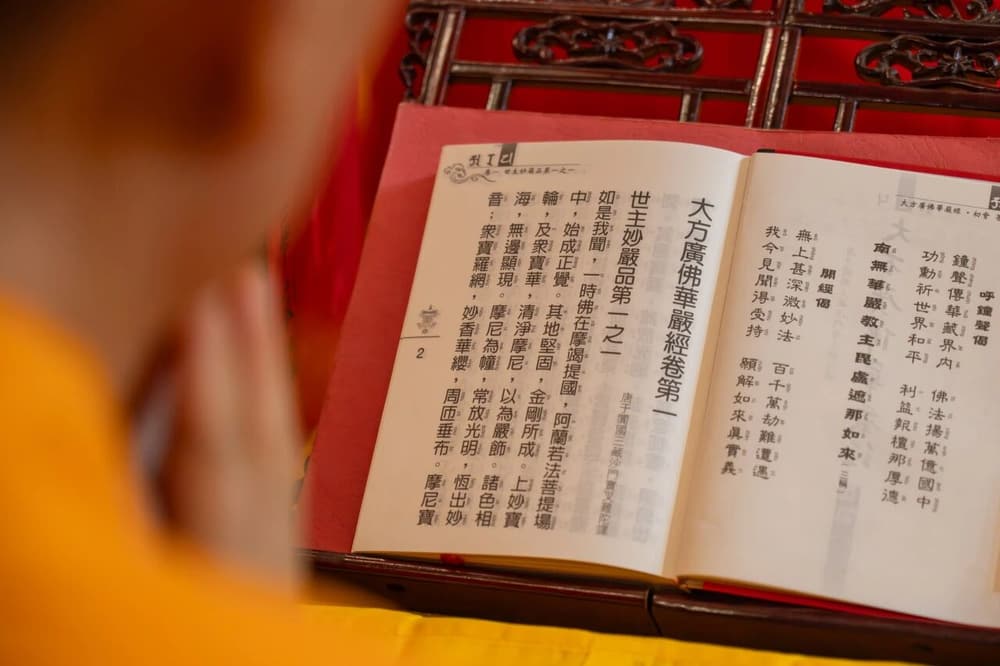 大方廣佛華嚴經・初會
呼鐘聲偈
鐘聲傳華藏界內 佛法揚萬億國中
功勳祈世界和平 利益報檀那厚德
南無華嚴教主毘盧遮那如來(三稱)
開經偈
無上甚深微妙法 百千萬劫難遭遇
我今見聞得受持 願解如來眞實義
卷一 世主妙嚴品第一之一
大方廣佛華嚴經卷第一
唐于闐國三藏沙門實叉難陀譯
世主妙嚴品第一之一
如是我聞，一時佛在摩竭提國，阿蘭若法菩提場
中，始成正覺。其地堅固，金剛所成。上妙寶
輪，及眾寶華，清淨摩尼，以為嚴飾。諸色相
海，無邊顯現。摩尼為幢，常放光明，恆出妙
音；眾寶羅網，妙香華纓，周匝垂布。摩尼寶
2